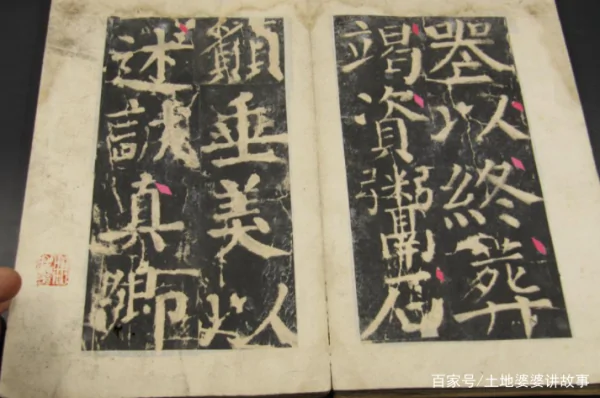 以終葬
竭資鬻石
願垂美以
述誠真卿
百家号/土地婆婆讲故事